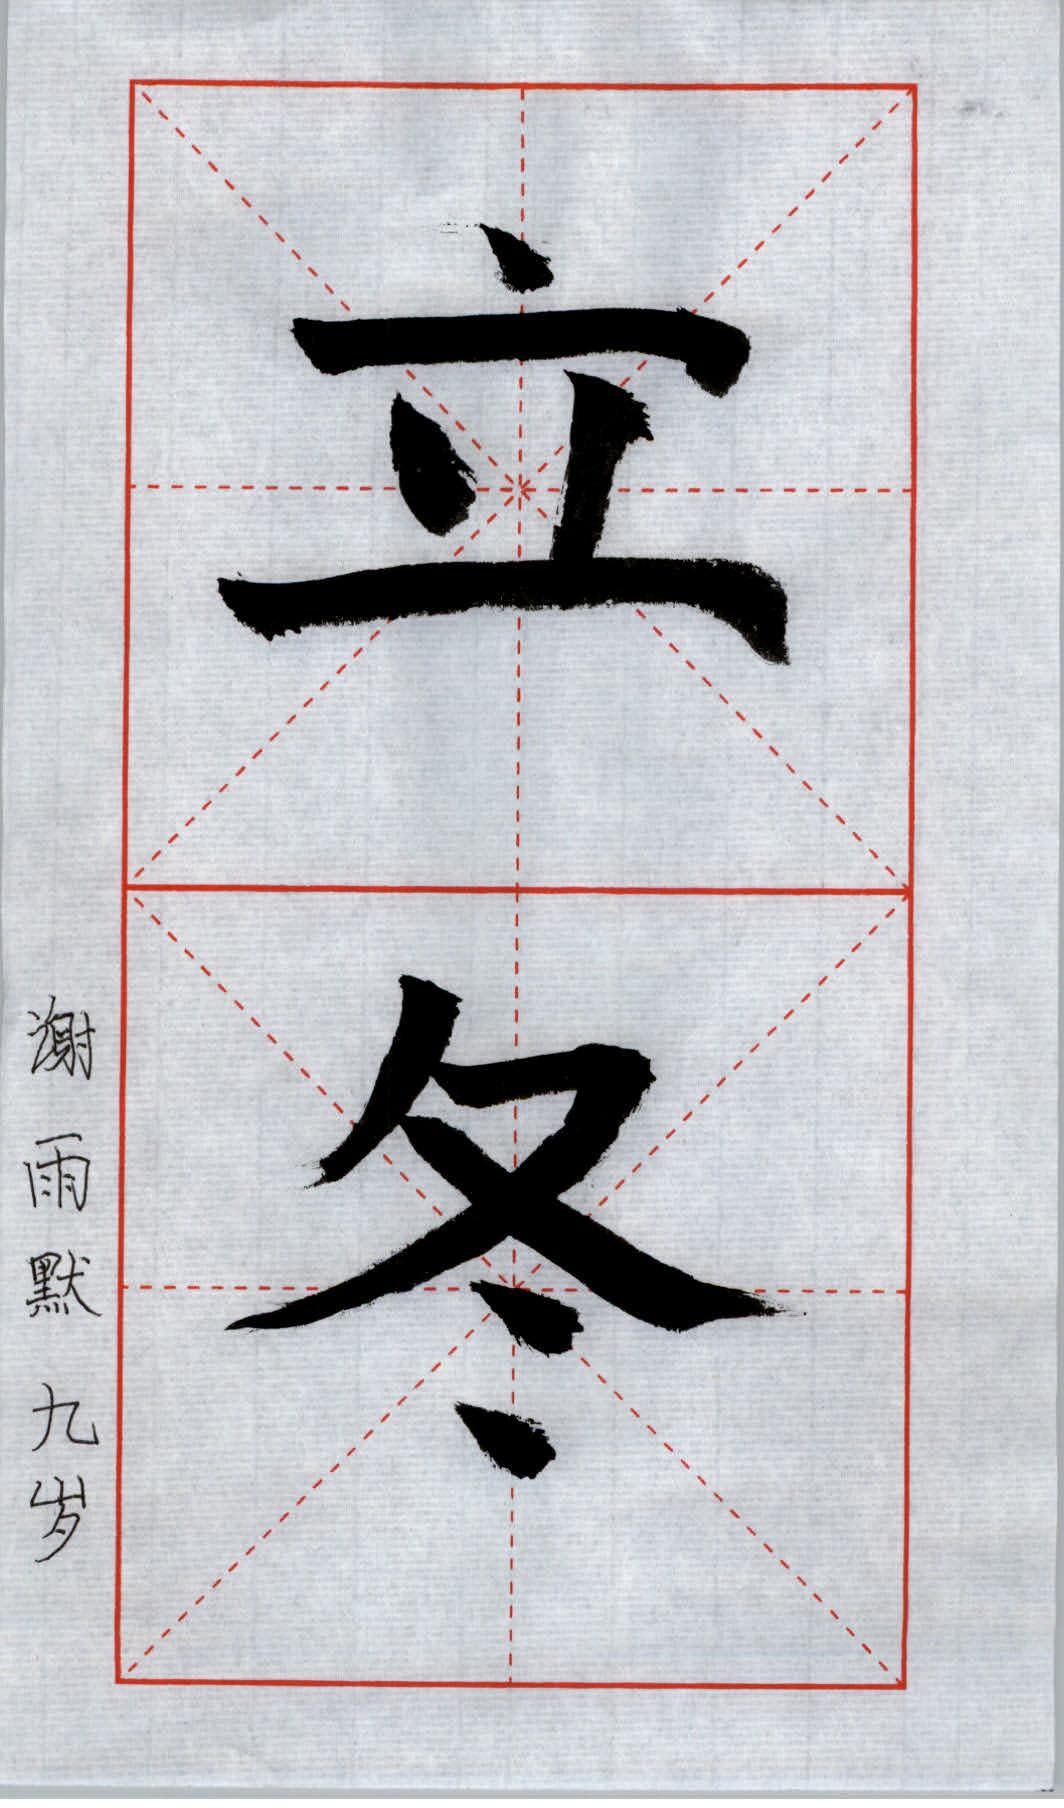 立冬
谢雨默九岁